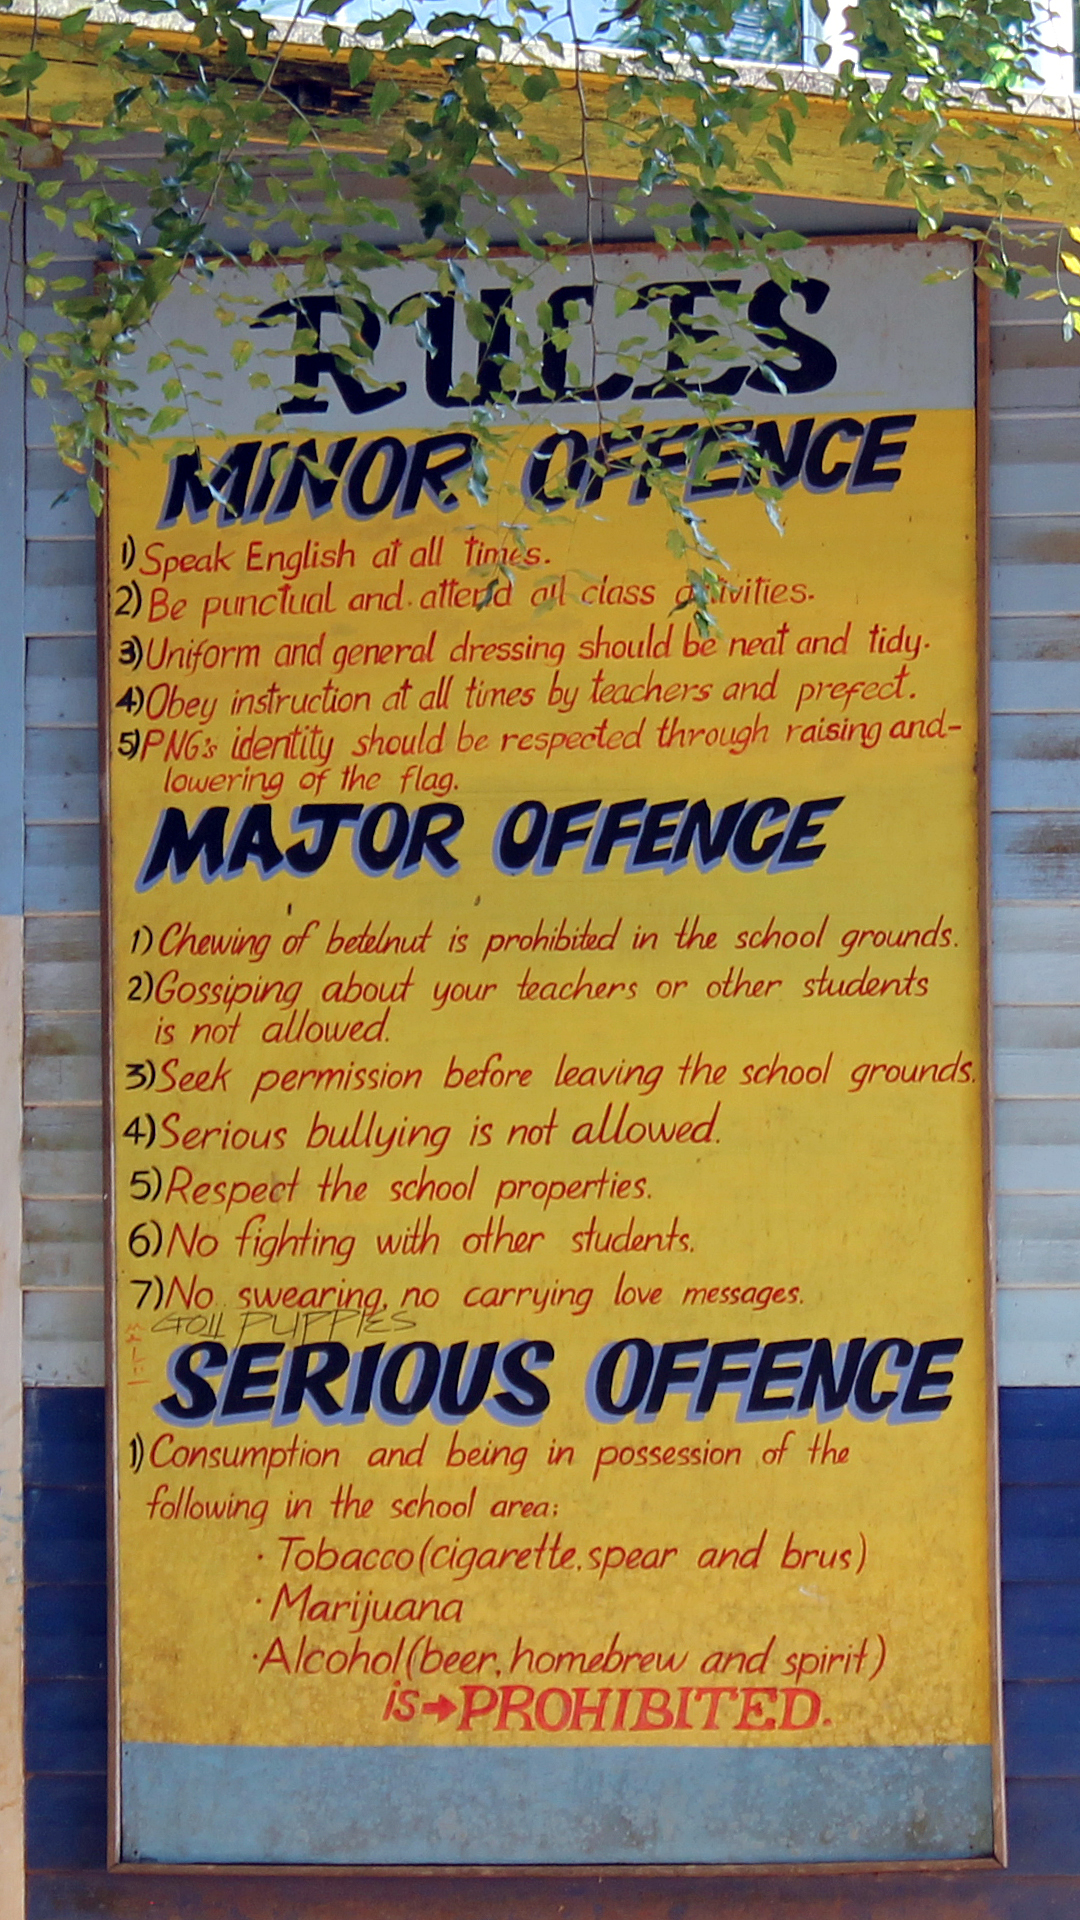 RULES
MINOR OFFENCE
1) Speak English at all times.
2) Be punctual and attend all class activities.
3) Uniform and general dressing should be neat and tidy.
4) Obey instruction at all times by teachers and prefect.
5) PNG's identity should be respected through raising and-
lowering of the flag.
MAJOR OFFENCE
1) Chewing of betelnut is prohibited in the school grounds.
2) Gossiping about your teachers or other students
is not allowed.
3) Seek permission before leaving the school grounds.
4) Serious bullying is not allowed.
5) Respect the school properties.
6) No fighting with other students.
7) No swearing, no carrying love messages.
PUPPIES
SERIOUS OFFENCE
1) Consumption and being in possession of the
following in the school area:
· Tobacco (cigarette, spear and brus)
· Marijuana
· Alcohol (beer, homebrew and spirit)
is → PROHIBITED.